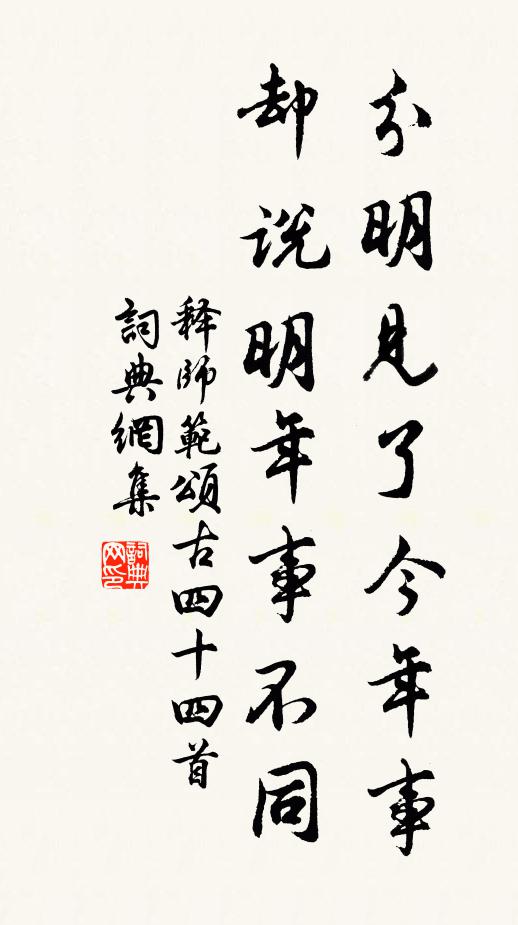 分明見了今年事
却説明年事不同
释師範頌古四十四首
詞典網集
詞典
网印